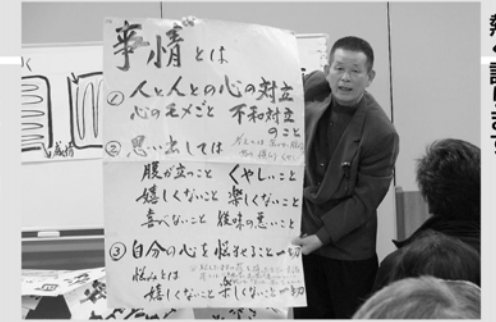 事情とは
① 人と人との心の対立
心のモメごと 不和対立
のこと
② 思い出しては
腹が立つこと くやしいこと
嬉しくないこと 楽しくないこと
喜べないこと 後味の悪いこと
③ 自分の心を悩ませること一切
悩みとは
嬉しくないこと 楽しくないこと一切
熱く語ります